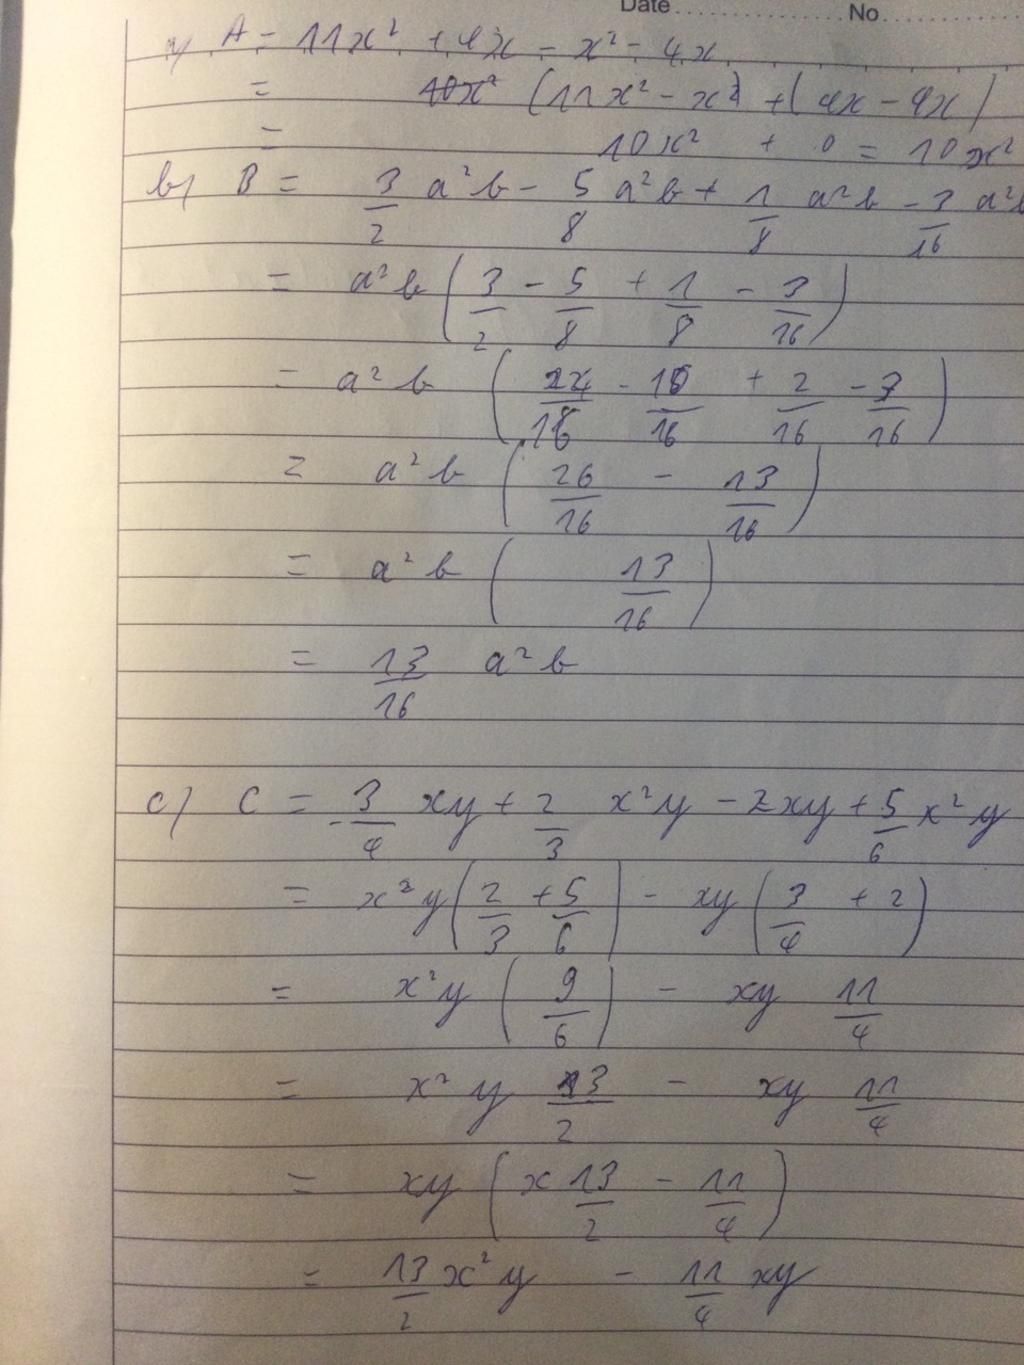 Date ................ No ............
a) A = 11x² + 4x - x² - 4x
= (11x² - x²) + (4x - 4x)
= 10x² + 0 = 10x²
b) B = 3/2 a²b - 5/8 a²b + 1/8 a²b - 3/16 a²b
= a²b (3/2 - 5/8 + 1/8 - 3/16)
= a²b (24/16 - 10/16 + 2/16 - 3/16)
= a²b (26/16 - 13/16)
= a²b (13/16)
= 13/16 a²b
c) C = -3/4 xy + 2/3 x²y - 2xy + 5/6 x²y
= x²y (2/3 + 5/6) - xy (3/4 + 2)
= x²y (9/6) - xy 11/4
= x²y 13/2 - xy 11/4
= xy (x 13/2 - 11/4)
= 13/2 x²y - 11/4 xy